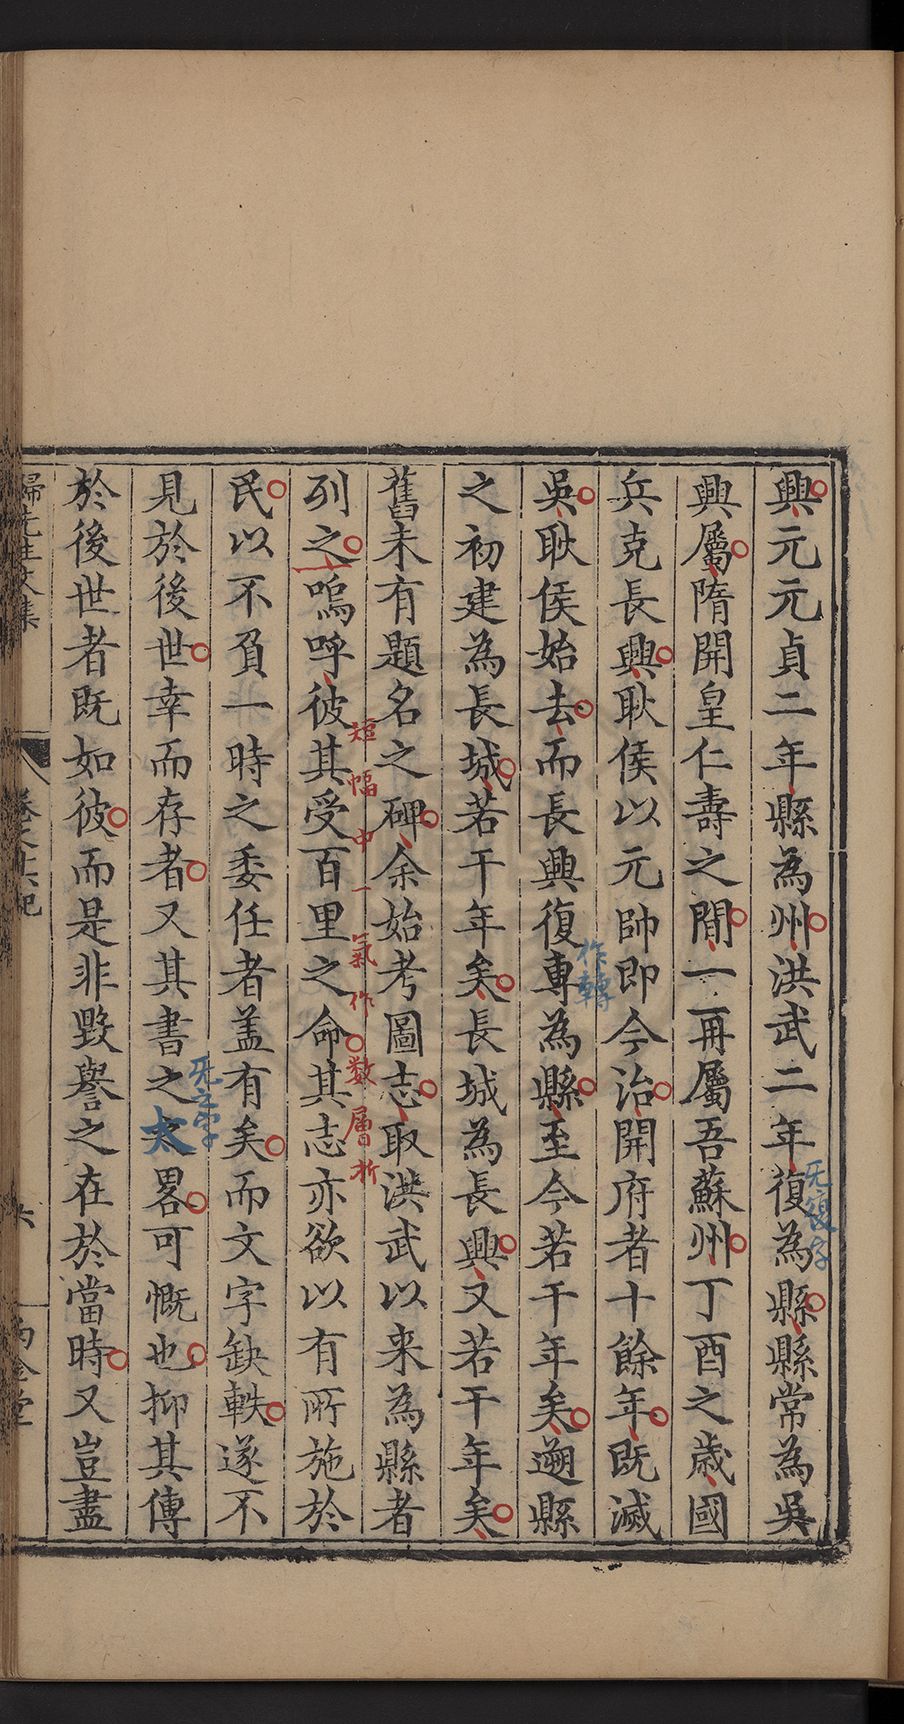 興元元貞二年縣為州洪武二年復為縣縣常為吳
无復字
興屬隋開皇仁壽之間一再屬吾蘇州丁酉之歲國
兵克長興耿侯以元帥即今治開府者十餘年既滅
作轉
吳耿侯始去而長興復專為縣至今若干年矣遡縣
之初建為長城若干年矣長城為長興又若干年矣
舊未有題名之碑余始考圖志取洪武以来為縣者
短幅中一氣作数層折
列之嗚呼彼其受百里之命其志亦欲以有所施於
民以不負一時之委任者盖有矣而文字缺軼遂不
无之字
見於後世幸而存者又其書之太畧可慨也抑其傳
於後世者既如彼而是非毀譽之在於當時又豈盡
歸先生文集